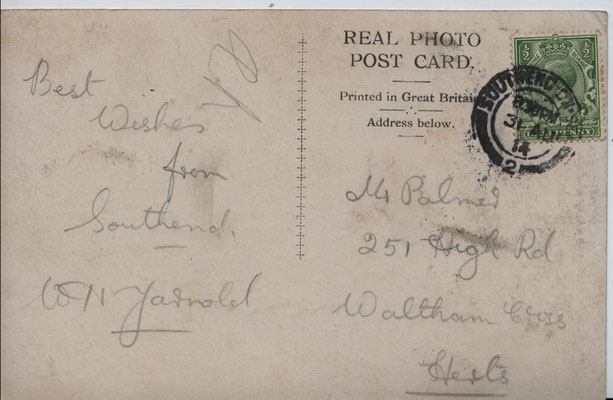 Best
Wishes
from
Southend.
REAL PHOTO
POST CARD.
Printed in Great Britain
Address below.
SOUTHEND
31 AU
14
2
½
½
Mr Palmer
251 High Rd
Waltham Cross
Herts